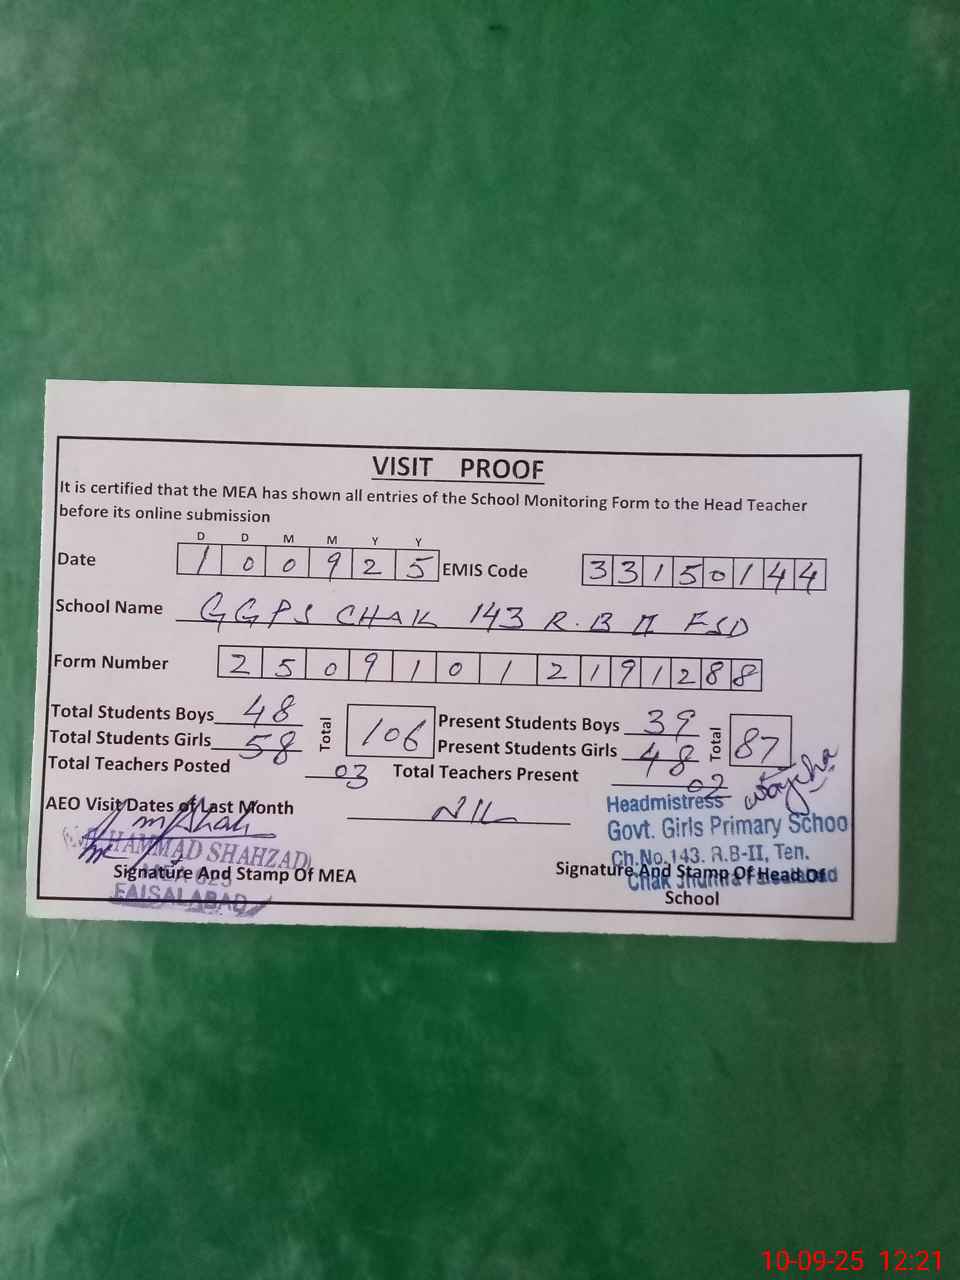 VISIT PROOF
It is certified that the MEA has shown all entries of the School Monitoring Form to the Head Teacher
before its online submission
D D M M Y Y
Date 1 0 0 9 2 5 EMIS Code 3 3 1 5 0 1 4 4
School Name GGPS CHAK 143 R.B II FSD
Form Number 2 5 0 9 1 0 1 2 1 9 1 2 8 8
Total Students Boys 48 Total 106 Present Students Boys 39 Total 87
Total Students Girls 58 Present Students Girls 48
Total Teachers Posted 03 Total Teachers Present 02
AEO Visit Dates of Last Month NIL
Headmistress
Govt. Girls Primary Schoo
Ch.No.143. R.B-II, Teh.
Chak Jhumra Faisalabad
HAMMAD SHAHZAD
FAISALABAD
Signature And Stamp Of MEA
Signature And Stamp Of Head Of
School
10-09-25 12:21